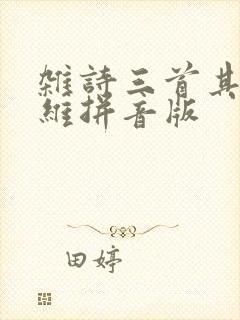 雜詩三首其
維拼音版
田婷